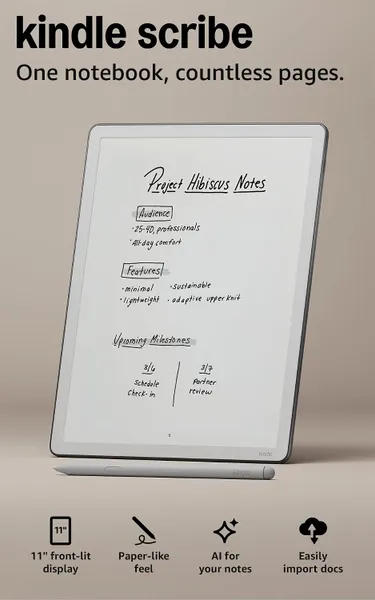 kindle scribe
One notebook, countless pages.
Project Hibiscus Notes
Audience
· 25-40, professionals
· All-day comfort
Features
· minimal · sustainable
· lightweight · adaptive upper knit
Upcoming Milestones
3/6 3/7
Schedule Partner
Check-in review
kindle
11"
11" front-lit Paper-like AI for Easily
display feel your notes import docs